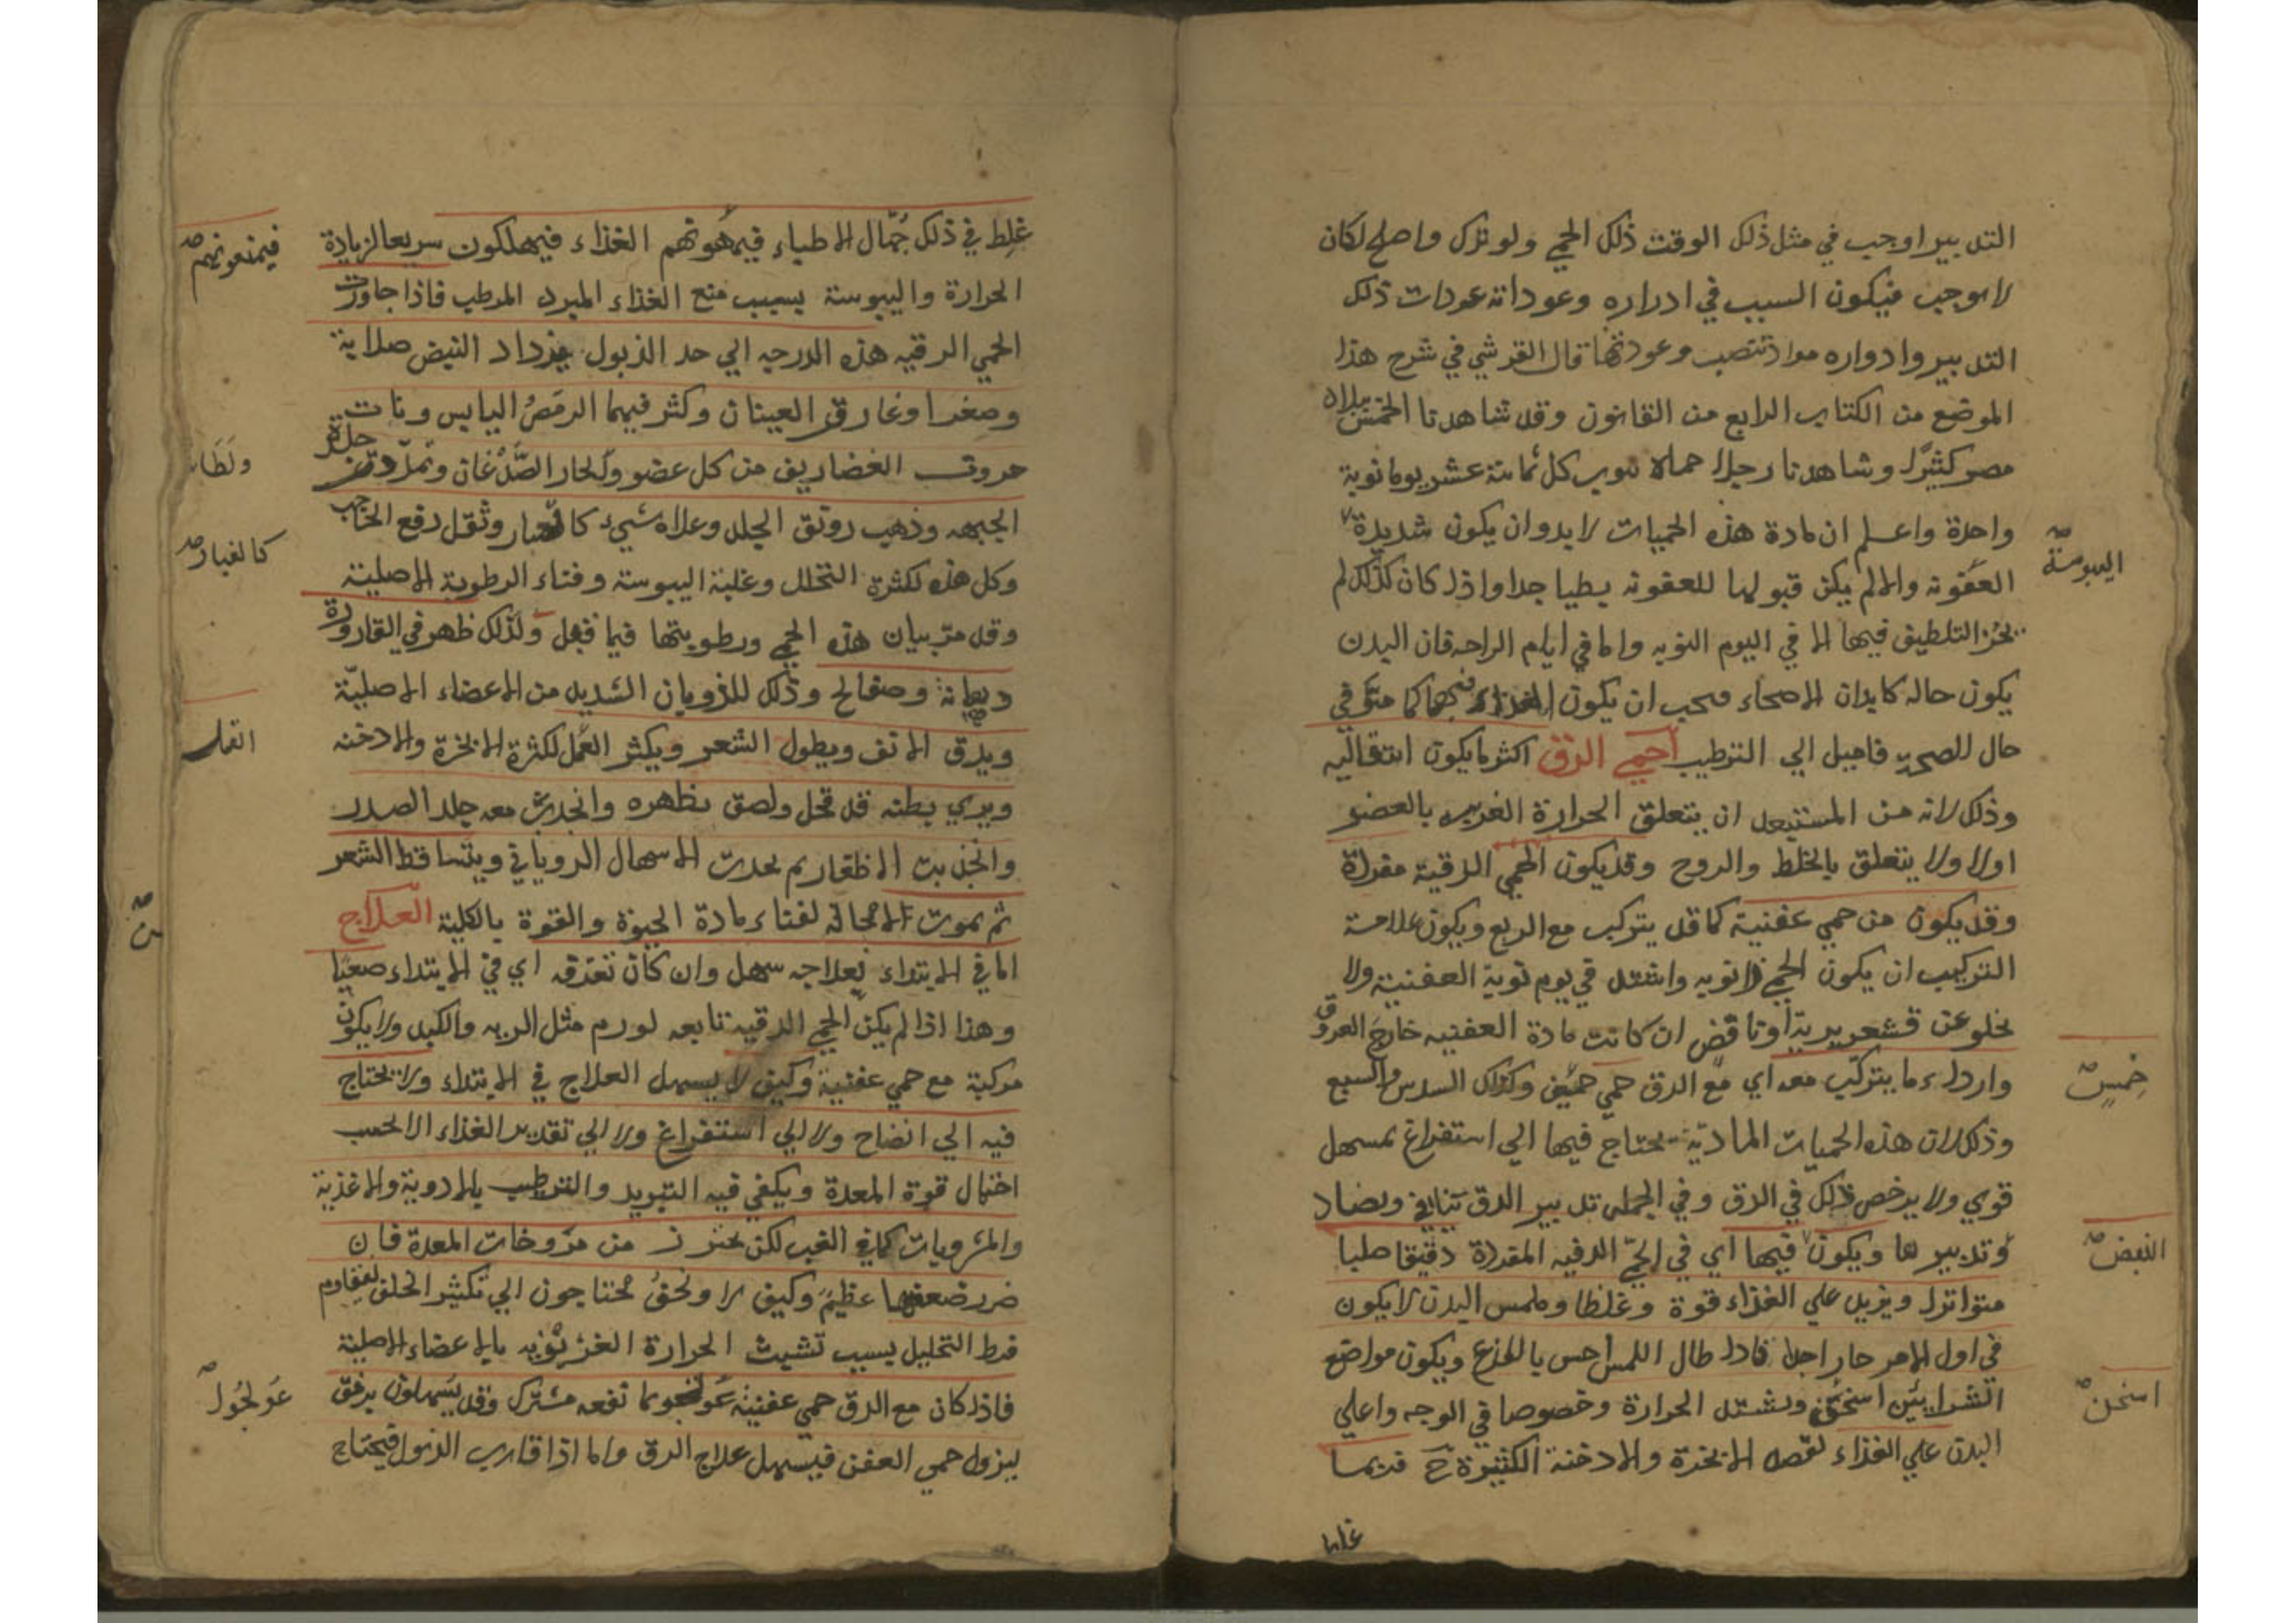 التدبير اوجب في مثل ذلك الوقت ذلك الحمي ولو ترك واصلح لكان
لا يوجب فيكون السبب في ادراره وعوداته عودات ذلك
التدبير وادواره مواد تنصب وعودتها قال القرشي في شرح هذا
الموضع من الكتاب الرابع من القانون وقد شاهدنا الخمس ببلاد
مصر كثيرًا وشاهدنا رجلا حماه تنوب كل ثمانية عشر يوما نوبة
واحدة واعلم ان مادة هذه الحميات لابد وان يكون شديدة
اليبوسة
العفونه والا لم يكن قبولها للعفونه بطيا جدا واذا كان كذلك لم
يجز التلطيف فيها الا في اليوم النوبه واما في ايام الراحه فان البدن
يكون حاله كابدان الاصحاء فيجب ان يكون الغذاء فيها كما في
حال الصحة فاميل الي الترطيب حمي الدق اكثر ما يكون انتقاليه
وذلك لانه من المستبعد ان يتعلق الحرارة الغريبه بالعضو
اولا ولا يتعلق بالخلط والروح وقد يكون الحمي الدقية مفردة
وقد يكون من حمي عفنية كما قد يتركب مع الربع ويكون علامة
التركيب ان يكون الحمي ذا نوبه واشتد في يوم نوبة العفنية ولا
يخلو عن قشعريرية او نافض ان كانت مادة العفنيه خارج العروق
واردا ما يتركب معه اي مع الدق حمي خمس وكذلك السدس والسبع
خمس
وذلك لان هذه الحميات المادية يحتاج فيها الي استفراغ بمسهل
قوي ولا يرخص ذلك في الدق وفي الجمله تدبير الدق ينافي ويضاد
وتدبيرها ويكون فيها اي في الحمّي الدقيه المفردة دقيقا صلبا
النبض
متواترا ويزيد علي الغذاء قوة وغلظا وملمس البدن لا يكون
في اول الامر حار اجدا فاذا طال اللمس احس بالذع ويكون مواضع
الشرايين اسخن ويشتد الحرارة وخصوصا في الوجه واعلي
اسخن
البدن علي الغذاء الابخرة والادخنة الكثيرة ح فربما
غلط في ذلك جُهّال الاطباء فيمنعونهم الغذاء فيهلكون سريعا لزيادة
فيمنعونهم
الحرارة واليبوسة بسبب منع الغذاء المبرد المرطب فاذا جاوزت
الحمي الدقيه هذه الدرجه الي حد الذبول يزداد النبض صلابة
وصغرا وغارت العينان وكثر فيهما الرمص اليابس ونات
حروف الغضاريف من كل عضو ولطا الصُّدْغان وتمدّدت جلدة
ولطا
الجبهه وذهب رونق الجلد وعلاه شيء كالغبار وثقل رفع الحاجب
كالغبار
وكل هذه لكثرة التحلل وغلبة اليبوسة وفناء الرطوبة الاصلية
وقد مرّ بيان هذه الحمي ورطوبتها فيما قبل ولذلك ظهر في القارورة
دهانة وصفائح وذلك للذوبان الشديد من الاعضاء الاصليّة
ويدق الانف ويطول الشعر ويكثر القمل لكثرة الابخرة والادخنه
القمل
ويري بطنه قد قحل ولصق بظهره وانجذب معه جلد الصدر
وانجذبت الاظفار ثم يحدث الاسهال الذوباني ويتساقط الشعر
ثم يموت لا محالة لفناء مادة الحيوة والقوة بالكلية العلاج
اما في الابتداء فعلاجه سهل وان كان تعرفه اي في الابتداء صعبًا
وهذا اذا لم يكن الحمي الدقيه تابعه لورم مثل الريه والكبد ولا يكون
مركبة مع حمي عفنية وكيف لا يسهل العلاج في الابتداء ولا يحتاج
فيه الي انضاج ولا الي استفراغ ولا الي تقدير الغذاء الا بحسب
احتمال قوة المعدة ويكفي فيه التبريد والترطيب بالادوية والاغذية
والمشروبات كما في الغب لكن يحترز من مرخيات المعدة فان
ضرر ضعفها عظيم وكيف لا ونحن محتاجون الي تكثير الخلق ليقاوم
فرط التحليل بسبب تشبث الحرارة الغريزيه بالاعضاء الاصلية
فاذا كان مع الدق حمي عفنية عولجوا بما نفعه مشترك وقد يسهلون برفق
عولجوا
ليزول حمي العفن فيسهل علاج الدق واما اذا قارب الذبول فيحتاج